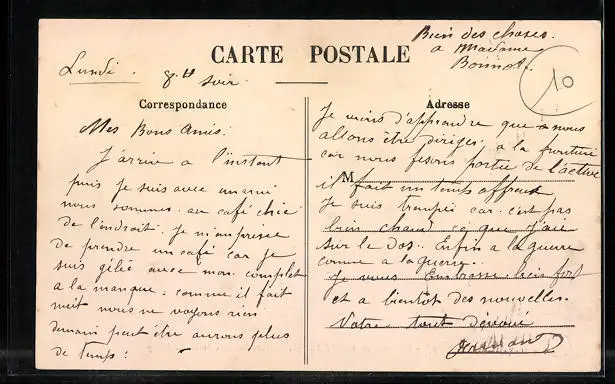 Bien des choses
a Madame
Bonnot.
10
CARTE POSTALE
Lundi. 8 H
soir
Correspondance
Mes Bons Amis.
J'arrive a l'instant
puis je suis avec un ami
nous sommes au café chic
de l'endroit. Je
de prendre un café car je
suis gêlée avec mon complet
a la manque. comme il fait
nuit nous ne voyons rien
demain peut être aurons plus
de temps.
Adresse
Je viens d'apprendre que nous
allons être dirigés a la frontière
car nous fesons partie de l'active
M
il fait un temps affreux
Je suis trempés car c'est pas
bien chaud ce que j'ai
sur le dos. Enfin a la guerre
comme a la guerre.
Je vous Embrasse bien fort
et a bientôt des nouvelles.
Votre tout dévoué